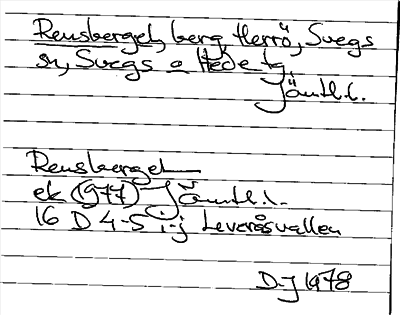 Rensberget, berg, Herrö, Svegs
sn, Svegs o Hede tg,
Jämtl.l.
Rensberget
ek (1977) Jämtl.l.
16 D 4-5 i-j Leveråsvallen
D-J 1978